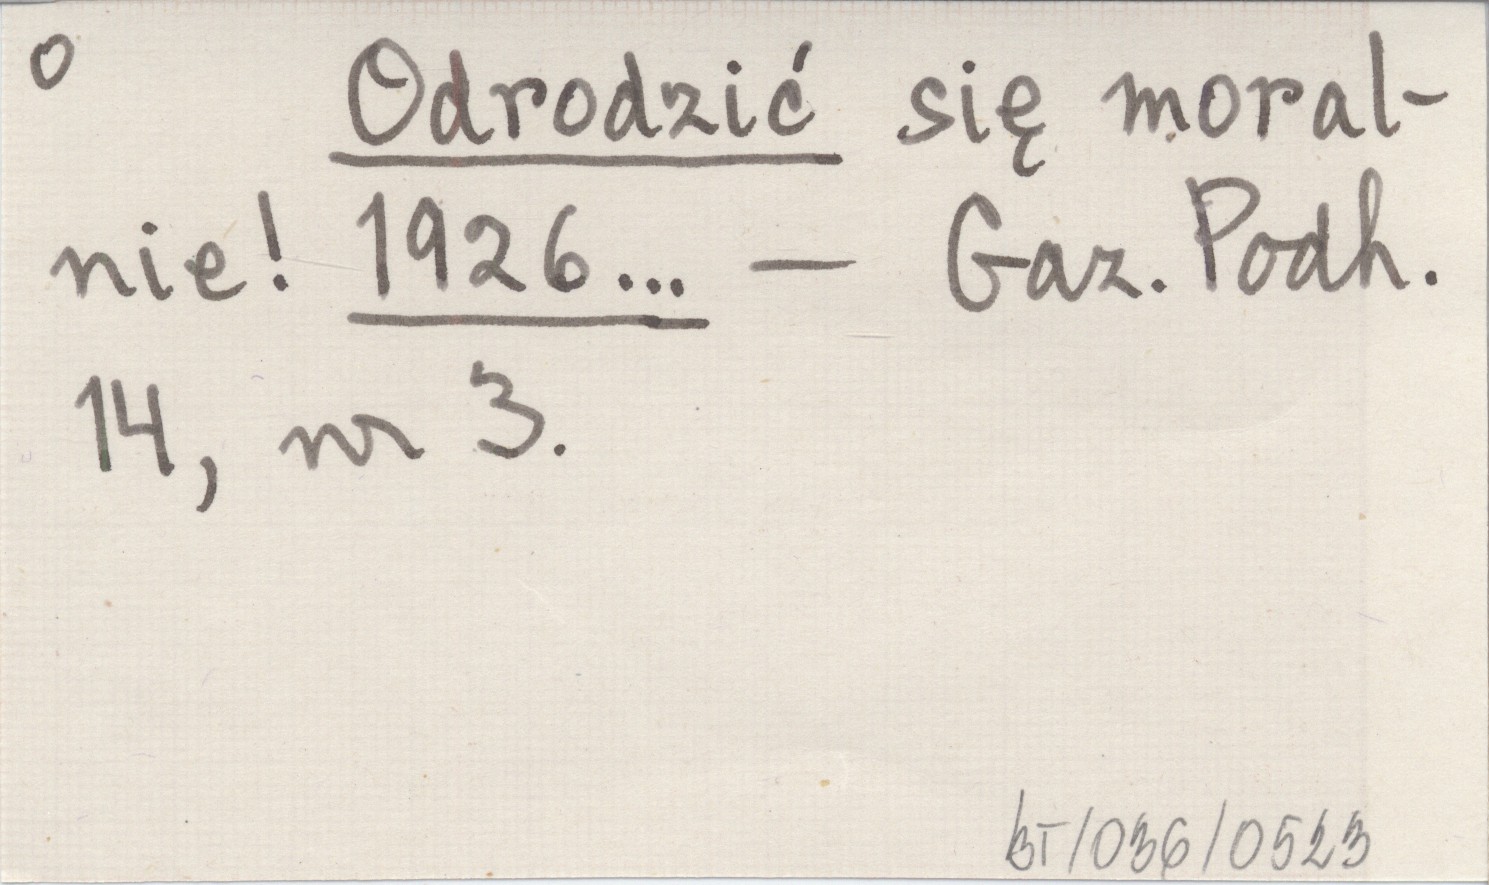 o Odrodzić się moral-
nie! 1926... — Gaz. Podh.
14, nr 3.
BT/036/0523